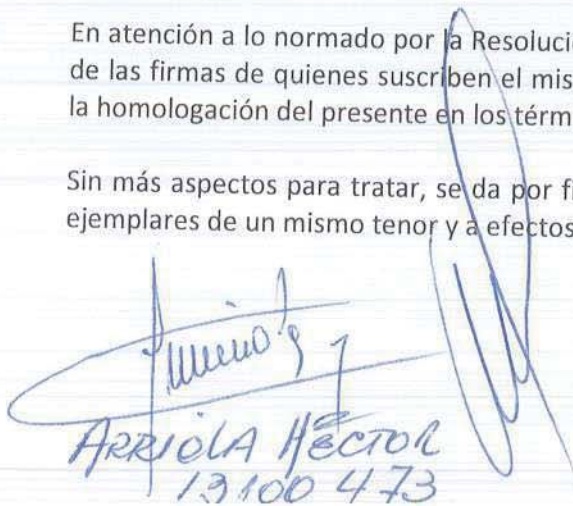 En atención a lo normado por la Resoluci
de las firmas de quienes suscriben el mis
la homologación del presente en los térm
Sin más aspectos para tratar, se da por f
ejemplares de un mismo tenor y a efectos
ARRIOLA HÉCTOR
13100 473